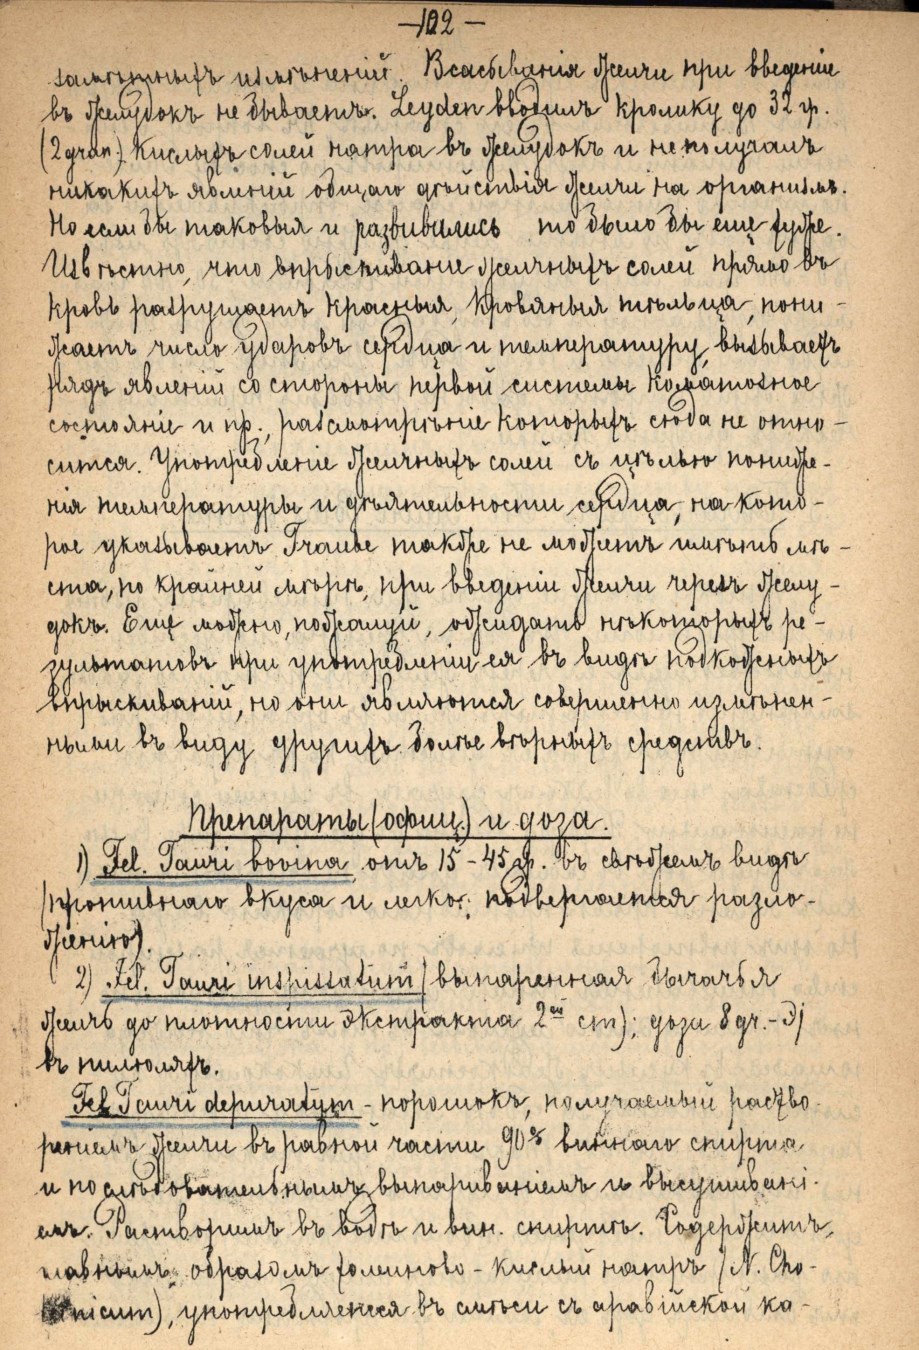 —102—
замѣтныхъ измѣненій. Всасыванія желчи при введеніе
въ желудокъ не бываетъ. Leyden вводилъ кролику до 32 гр.
(2 gran) кислыхъ солей натра въ желудокъ и не получалъ
никакихъ явленій общаго дѣйствія желчи на организмъ.
Но если бы таковыя и развивались то было бы еще хуже.
Извѣстно, что впрыскиваніе желчныхъ солей прямо въ
кровь разрушаетъ красныя, кровяныя тѣльца, пони-
жаетъ число ударовъ сердца и температуру, вызываетъ
рядъ явленій со стороны нервой системы коматозное
состояніе и пр., разсмотрѣніе которыхъ сюда не отно-
сится. Употребленіе желчныхъ солей съ цѣлью пониже-
нія температуры и дѣятельности сердца, на кото-
рое указываетъ Traube также не можетъ имѣть мѣ-
ста, по крайней мѣрѣ, при введеніи желчи через желу-
докъ. Ещё можно, пожалуй, ожидать нѣкоторыхъ ре-
зультатовъ при употребленіи ея въ видѣ подкожныхъ
впрыскиваній, но они являются совершенно измѣнен-
ными въ виду другихъ болѣе вѣрныхъ средствъ.
Препараты (офиц.) и доза.
1) Fel. Tauri bovina отъ 15-45 гр. въ свѣжемъ видѣ
(противнаго вкуса и легко подвергается разло-
женію).
2) Fel. Tauri inspissatum (выпаренная бычачья
желчь до плотности экстракта 2ой ст); дозы 8 gr. - Эj
въ пилюляхъ.
Fel Tauri depuratum - порошокъ, получаемый раство-
реніемъ желчи въ равной части 90% виннаго спирта
и послѣдовательнымъ выпариваніемъ и высушивані-
емъ. Растворимъ въ водѣ и вин. спиртѣ. Содержитъ,
главнымъ образомъ холеиново-кислый натръ (N. Cho-
nicum), употребляется въ смѣси съ аравійской ка-